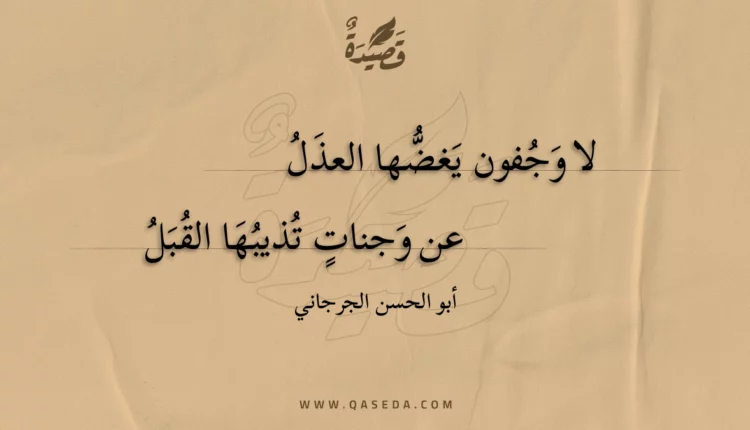 قَصِيدَةٌ
لا وَجُفون يَغضُّها العذَلُ
عن وَجناتٍ تُذيبُهَا القُبَلُ
أبو الحسن الجرجاني
WWW.QASEDA.COM